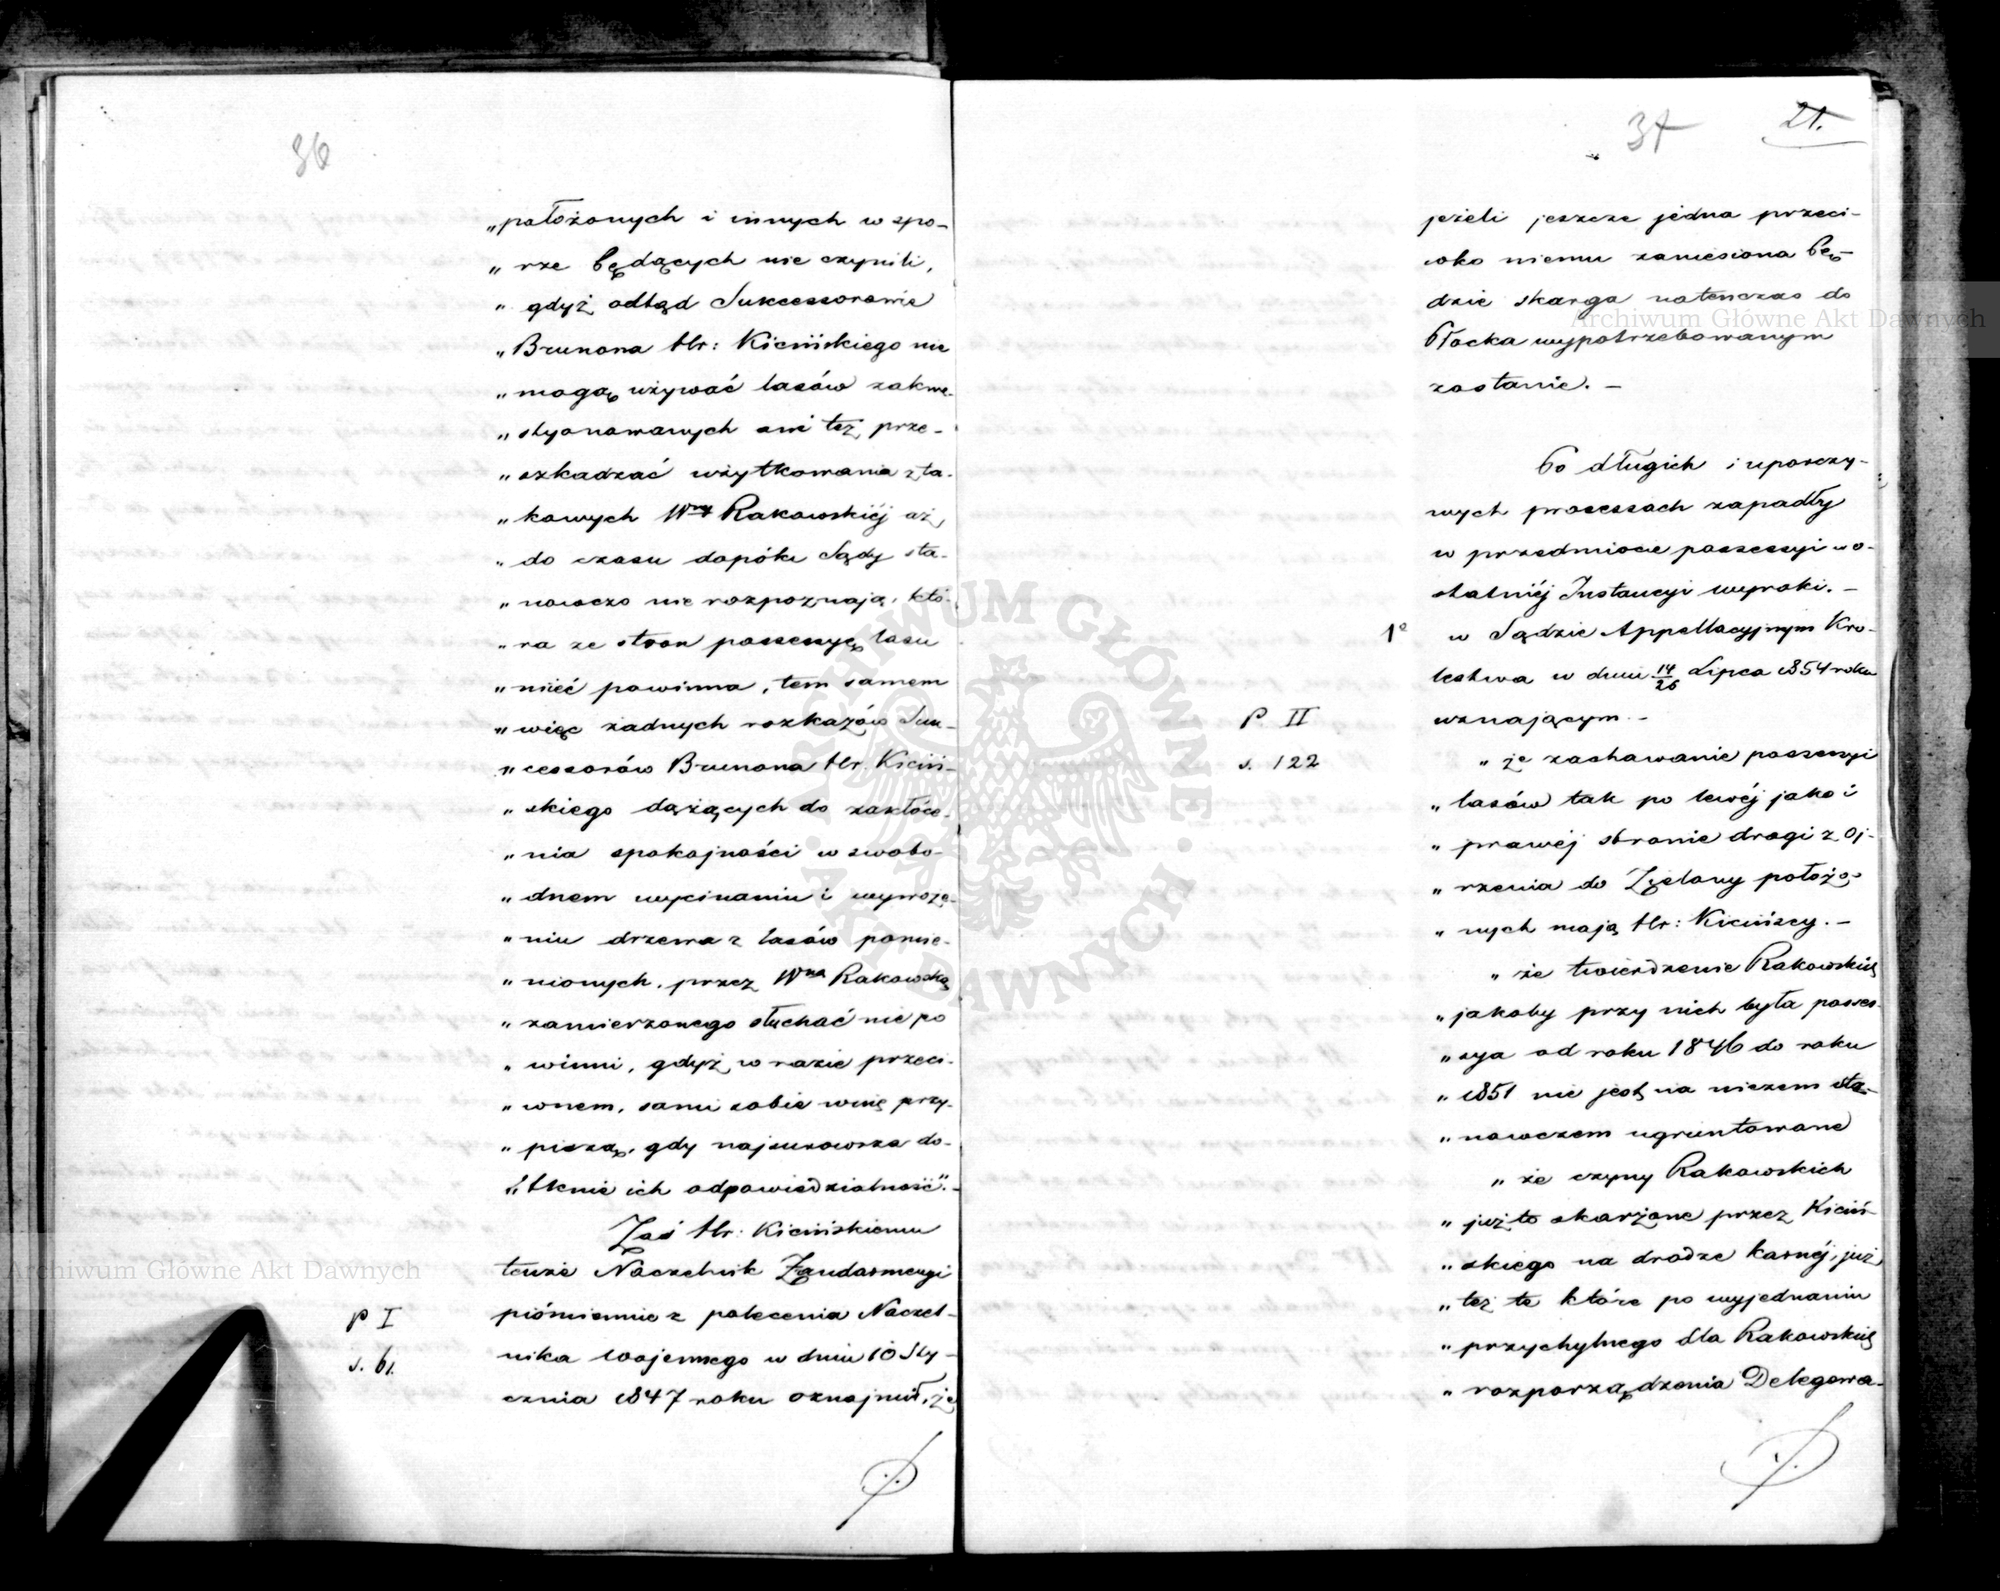 36
„położonych i innych w spo-
„rze będących nie czynili,
„gdyż odtąd Sukcessorowie
„Brunona Hr: Kicińskiego nie
„mogą używać lasów zakwe-
„styonowanych ani też prze-
„szkadzać użytkowania z ta-
„kowych Wnej Rakowskiéj aż
„do czasu dopóki Sądy sta-
„nowczo nie rozpoznają, któ-
„ra ze stron possessyę lasu
„mieć powinna, tem samem
„więc żadnych rozkazów Suk-
„cessorów Brunona Hr. Kiciń-
„skiego dążących do zakłóce-
„nia spokojności w swobo-
„dnem wycinaniu i wywoże-
„niu drzewa z lasów pomie-
„nionych, przez Wna Rakowską
„zamierzonego słuchać nie po
„winni, gdyż w razie przeci-
„wnem, sami sobie winę przy-
„piszą, gdy najsurowsza do-
„tknie ich odpowiedzialność".-
Zaś Hr: Kicińskiemu
tenże Naczelnik Żandarmeryi
piśmiennie z polecenia Naczel-
P I
nika Wojennego w dniu 10 Sty-
s. 61.
cznia 1847 roku oznajmił, że
37
21.
jeżeli jeszcze jedna przeci-
wko niemu zaniesiona bę-
dzie skarga natenczas do
Płocka wypotrzebowanym
zostanie. -
Po długich i uporczy-
wych processach zapadły
w przedmiocie possessyi w o-
statniéj Instancyi wyroki. -
1º w Sądzie Appellacyjnym Kró-
lestwa w dniu 14/26 Lipca 1854 roku
P II
uznającym. -
s. 122
„że zachowanie possessyi
„lasów tak po lewéj jako i
„prawéj stronie drogi z Oj-
„rzenia do Żelazny położo-
„nych mają Hr: Kicińscy. -
„że twierdzenie Rakowskiéj
„jakoby przy nich była posses-
„sya od roku 1846 do roku
„1851 nie jest na niczem sta-
„nowczem ugruntowane
„że czyny Rakowskich
„już to skarżone przez Kiciń-
„skiego na drodze karnéj, już
„też te które po wyjednaniu
„przychylnego dla Rakowskiéj
„rozporządzenia Delegowa-
Archiwum Główne Akt Dawnych
Archiwum Główne Akt Dawnych
ARCHIWUM GŁÓWNE · AKT DAWNYCH ·